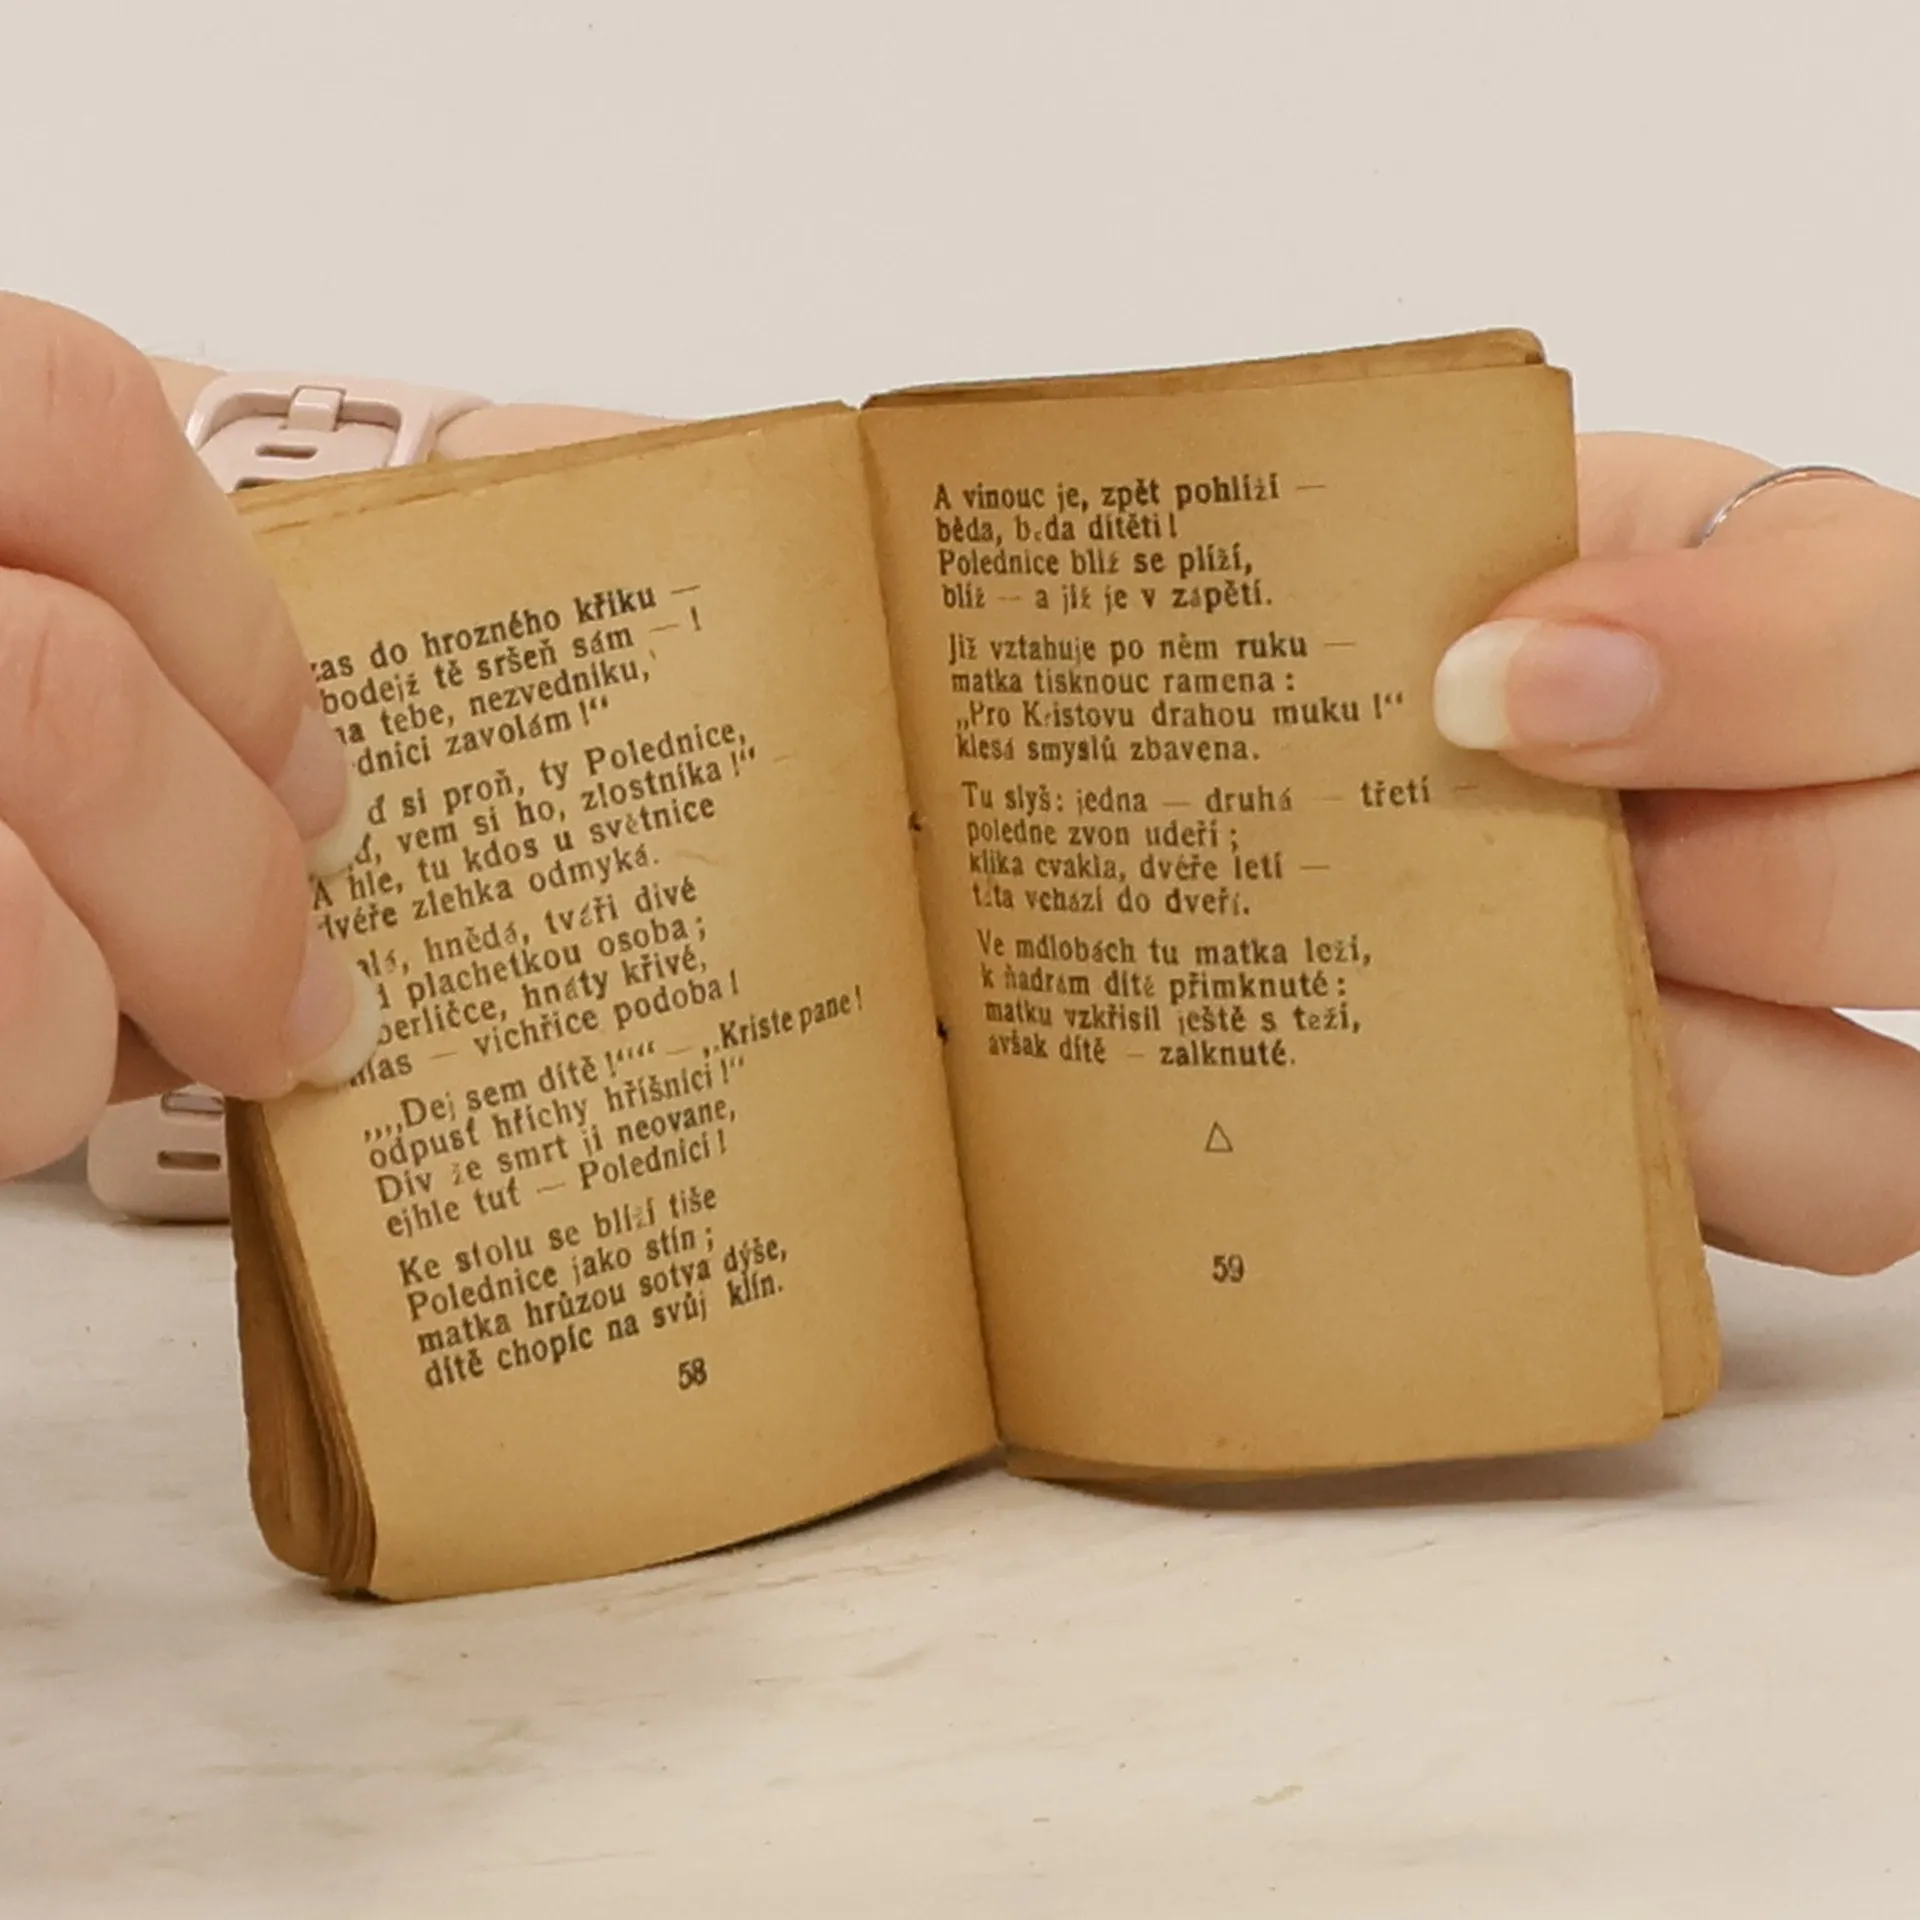 do hrozného křiku —
bodejž tě sršeň sám — !
na tebe, nezvedníku,
zavolám !“
si proň, ty Polednice,
vem si ho, zlostníka !“
A hle, tu kdos u světnice
dvéře zlehka odmyká.
hnědá, tváři divé
plachetkou osoba ;
hnáty křivé,
— vichřice podoba !
„„Dej sem dítě !““ — „Kriste pane !
odpusť hříchy hříšnici !“
Div že smrt ji neovane,
ejhle tuť — Polednici !
Ke stolu se blíží tiše
Polednice jako stín ;
matka hrůzou sotva dýše,
dítě chopíc na svůj klín.
58
A vinouc je, zpět pohlíží —
běda, běda dítěti !
Polednice blíž se plíží,
blíž — a již je v zápětí.
Již vztahuje po něm ruku —
matka tisknouc ramena :
„Pro Kristovu drahou muku !“
klesá smyslů zbavena.
Tu slyš : jedna — druhá — třetí —
poledne zvon udeří ;
klika cvakla, dvéře letí —
táta vchází do dveří.
Ve mdlobách tu matka leží,
k ňadrám dítě přimknuté :
matku vzkřísil ještě s teží,
avšak dítě — zalknuté.
59